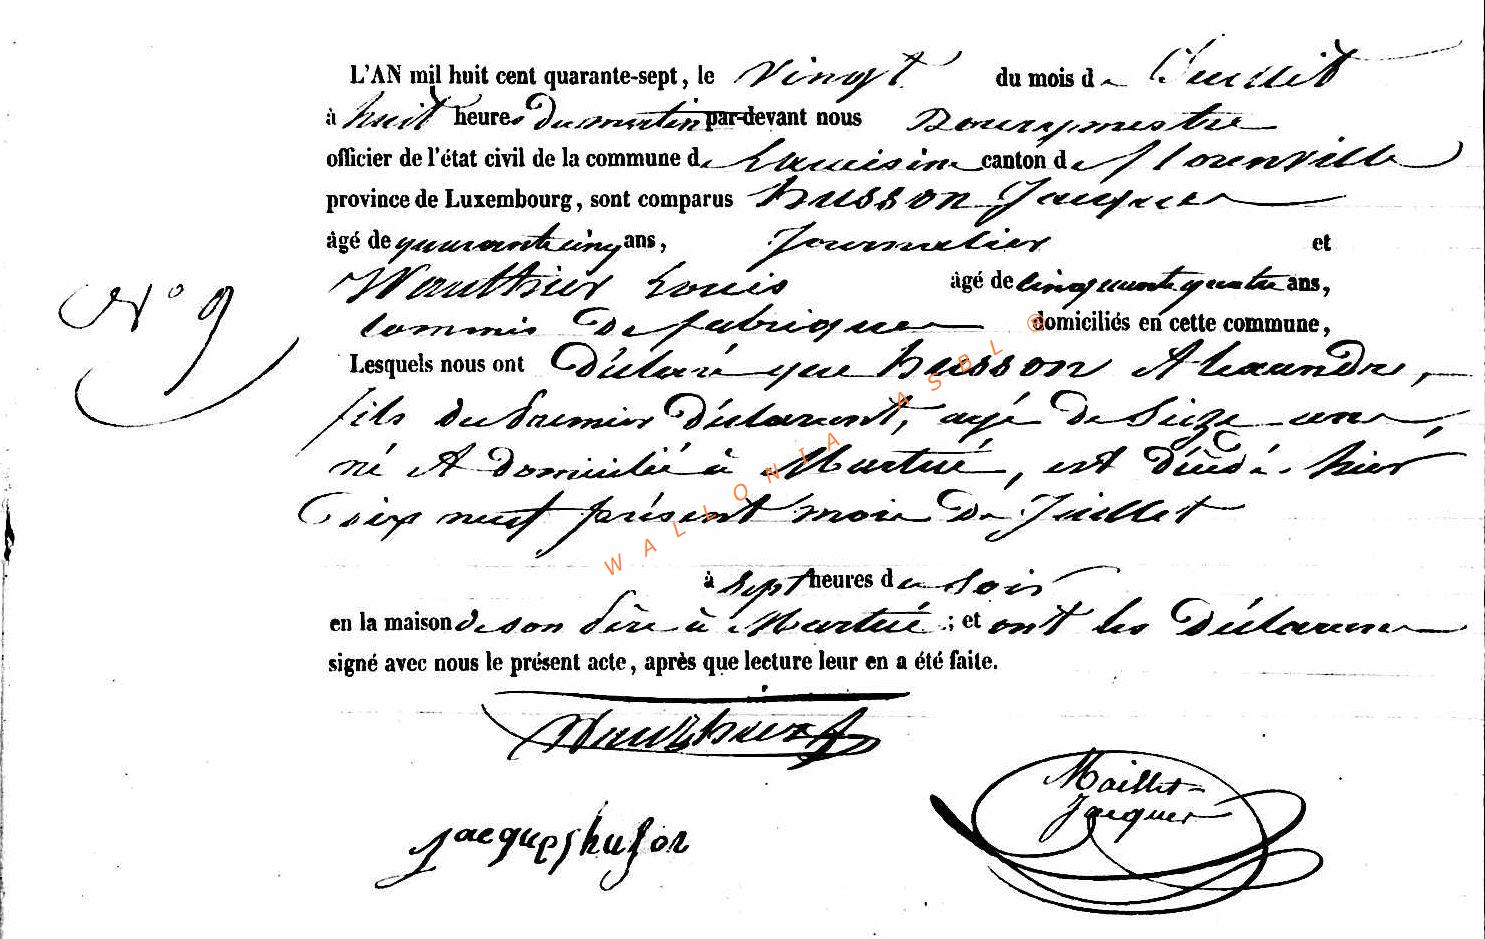 L'AN mil huit cent quarante-sept, le Vingt du mois de Juillet
à huit heures Du matin par-devant nous Bourgmestre
officier de l'état civil de la commune de Lacuisine canton de florenville
province de Luxembourg, sont comparus husson Jacques
âgé de quarante cinq ans, Journalier et
Wauthier Louis âgé de cinquante quatre ans,
Commis De fabrique domiciliés en cette commune,
Lesquels nous ont Déclaré que husson Alexandre,
fils du Premier Déclarant, agé De Seize ans,
né et Domicilié à Martué, est Décédé hier
Dix neuf présent mois De Juillet
à Sept heures du Soir
en la maison de son Père à Martué ; et ont les Déclarans
signé avec nous le présent acte, après que lecture leur en a été faite.
N° 9
Wauthier
Maillet
Jacques
jacques huson
WALLONIA ASBL ©